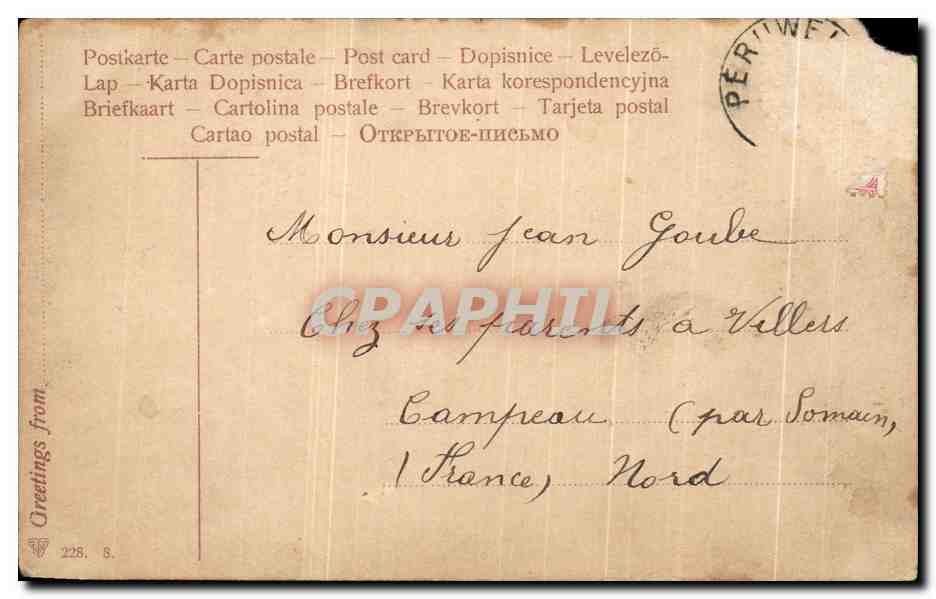 Postkarte – Carte postale – Post card – Dopisnice – Levelező-
Lap – Karta Dopisnica – Brefkort – Karta korespondencyjna
Briefkaart – Cartolina postale – Brevkort – Tarjeta postal
Cartao postal – Открытое-письмо
PÉRUWEL
Monsieur Jean Goube
CPAPHIL
Chez ses parents à Villers
Campeau (par Somain,
(France) Nord
Greetings from
228. S.